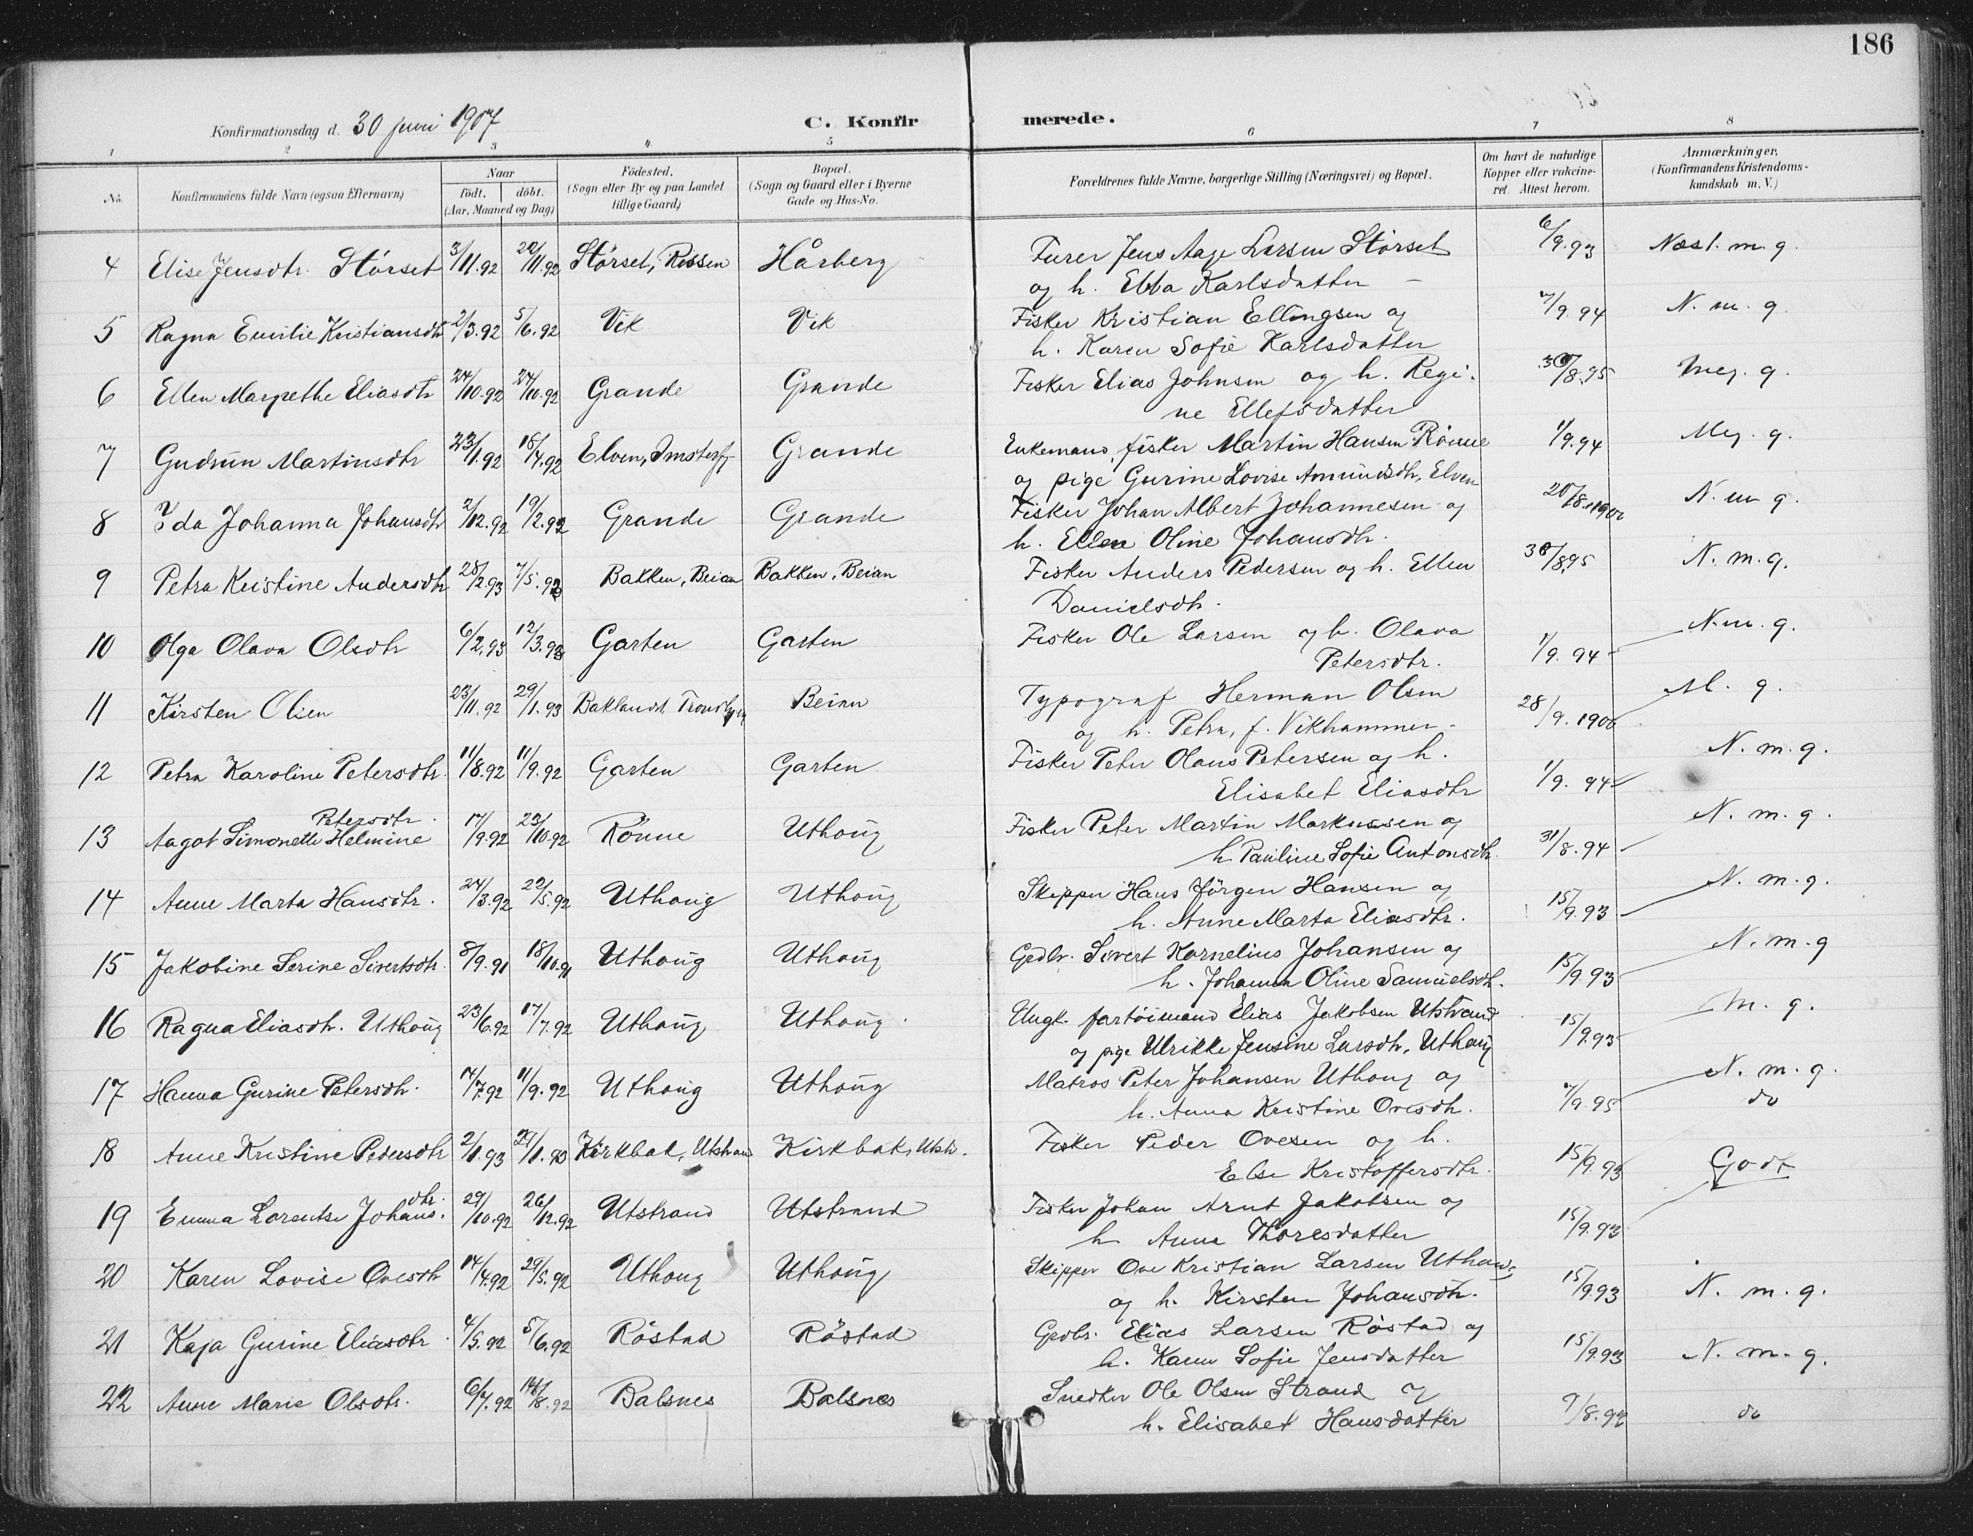 186
Konfirmationsdag d. 30 juni 1907 C. Konfirmerede.
1 2 3 4 5 6 7 8
No. Konfirmandens fulde Navn (ogsaa Efternavn) Naar født. døbt. (Aar, Maaned og Dag) Fødested. (Sogn eller By og paa Landet tillige Gaard) Bopæl. (Sogn og Gaard eller i Byerne Gade og Hus-No. Forældrenes fulde Navne, borgerlige Stilling (Næringsvei) og Bopæl. Om havt de naturlige Kopper eller vakcineret. Attest herom. Anmærkninger. (Konfirmandens Kristendomskundskab m. V.)
4 Elise Jensdtr. Störset 3/11.92 22/11.92 Störset, Rissen Hårberg Furer Jens Aage Larsen Störset 6/9.93 Næst. m. g.
og h. Ebba Karlsdatter
5 Ragna Emilie Kristiansdtr 2/3.92 5/6.92 Vik Vik Fisker Kristian Ellingsen og 7/9.94 N. m. g.
h. Karen Sofie Karlsdatter
6 Ellen Margrethe Eliasdtr 24/10.92 24/10.92 Grande Grande Fisker Elias Johnsen og h. Regi- 30/8.95 Meg. g.
ne Ellefsdatter
7 Gudrun Martinsdtr 23/1.92 18/4.92 Elven, Grande Enkemand, fisker Martin Hansen Rönne 1/9.94 Meg. g.
og pige Gurine Lovise Amundsdtr, Elven
8 Ida Johanna Johansdtr 2/12.92 19/2.93 Grande Grande Fisker Johan Albert Johannesen og 20/8.1900 N. m g.
h. Ellen Oline Johansdtr.
9 Petra Kristine Andersdtr 28/2.93 7/5.93 Bakken, Beian Bakken, Beian Fisker Anders Pedersen og h. Ellen 30/8.95 N. m. g.
Danielsdtr.
10 Olga Olava Olsdtr 6/2.93 12/3.93 Garten Garten Fisker Ole Larsen og h. Olava 1/9.94 N. m. g.
Petersdtr.
11 Kirsten Olsen 23/11.92 29/1.93 Baklandet, Beian Typograf Herman Olsen 28/9.1906 M. g.
og h. Petra, f. Vikhammer.
12 Petra Karoline Petersdtr. 11/8.92 11/9.92 Garten Garten Fisker Peter Olaus Petersen og h. 1/9.94 N. m. g.
Elisabet Eliasdtr
13 Aagot Simonette Helmine Petersdtr. 17/9.92 23/10.92 Rönne Uthoug Fisker Peter Martin Markussen og 31/8.94 N. m. g.
h Pauline Sofie Antonsdtr.
14 Anne Marta Hansdtr. 24/3.92 22/5.92 Uthoug Uthoug Skipper Hans Jörgen Hansen og 15/9.93 N. m. g.
h. Anne Marta Eliasdtr.
15 Jakobine Serine Sivertsdtr. 8/9.91 18/10.91 Uthoug Uthoug Grdbr. Sivert Kornelius Johansen og 15/9.93 N. m. g
h. Johanna Oline Samuelsdtr.
16 Ragna Eliasdtr. Uthoug 23/6.92 17/7.92 Uthoug Uthoug Ungk. fartöimand Elias Jakobsen Utstrand 15/9.93 M. g.
og pige Ulrikke Jensine Larsdtr, Uthoug
17 Hanna Gurine Petersdtr. 14/7.92 11/9.92 Uthoug Uthoug Matros Peter Johansen Uthoug og 7/9.95 N. m. g.
h. Anna Kristine Ovesdtr.
18 Anne Kristine Pedersdtr 2/1.93 Kirkbak, Utstrand Kirkbak, Utstr. Fisker Peder Ovesen og h. 15/9.93 do
Else Kristoffersdtr.
19 Emma Lorentse Johansdtr. 29/10.92 26/12.92 Utstrand Utstrand Fisker Johan Arnt Jakobsen og 15/9.93 Godt
h Anna Thoresdatter
20 Karen Lovise Ovesdtr 14/4.92 29/5.92 Uthoug Uthoug Skipper Ove Kristian Larsen Uthoug 15/9.93 N. m. g.
og h. Kirsten Johansdtr.
21 Kaja Gurine Eliasdtr. 4/5.92 5/6.92 Röstad Röstad Grdbr. Elias Larsen Röstad og 15/9.93 N. m. g.
h. Karen Sofie Jensdatter
22 Anne Marie Olsdtr. 6/7.92 14/8.92 Balsnes Balsnes Snedker Ole Olsen Strand og 9/8.92 do
h. Elisabet Hansdatter